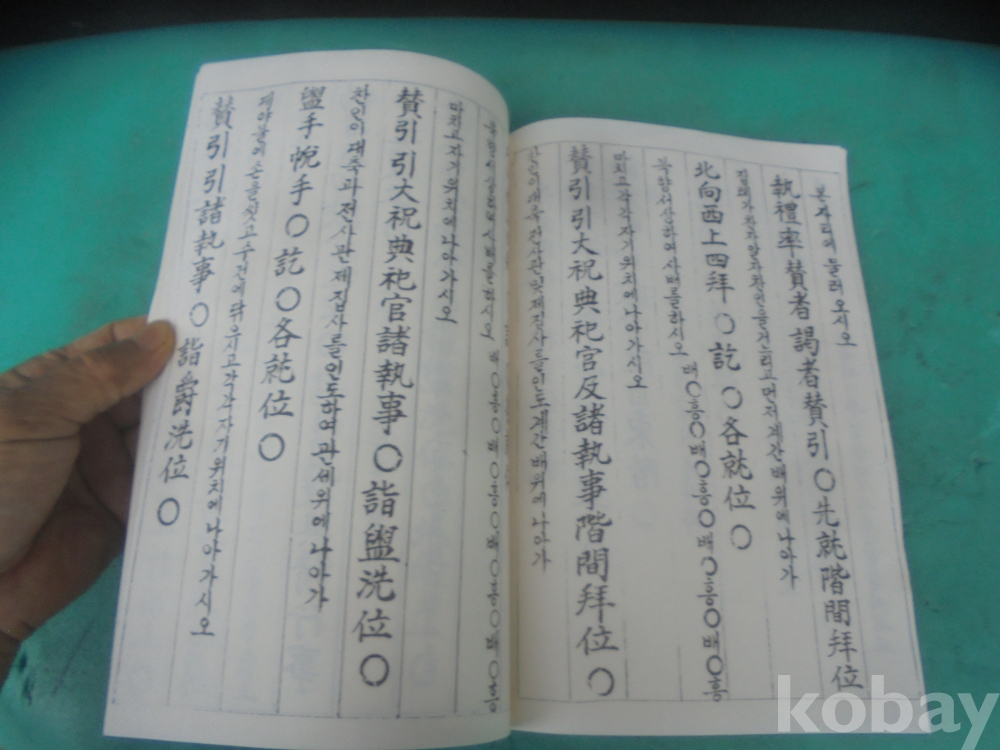 본자리에 물러오시오
執禮率賛者謁者賛引〇先就階間拜位
집례가 찬자알자찬인을 거느리고 먼저 계간배위에 나아가
北向西上四拜〇訖〇各就位〇
북향서상하여 사배를하시오 배〇흥〇배〇흥〇배〇흥〇배〇흥
마치고 각각 자기위치에 나아가시오
賛引引大祝典祀官反諸執事階間拜位〇
찬인이 대축전사관및제집사를 인도계간배위에 나아가
사배를하시오 배〇흥〇배〇흥〇배〇흥〇배〇흥
마치고 자기위치에 나아가시오
賛引引大祝典祀官諸執事〇詣盥洗位〇
찬인이 대축과 전사관 제집사를 인도하여 관세위에 나아가
盥手帨手〇訖〇各就位〇
손을씻고 수건에 닦으시고 각각 자기위치에 나아가시오
賛引引諸執事〇詣爵洗位〇
kobay